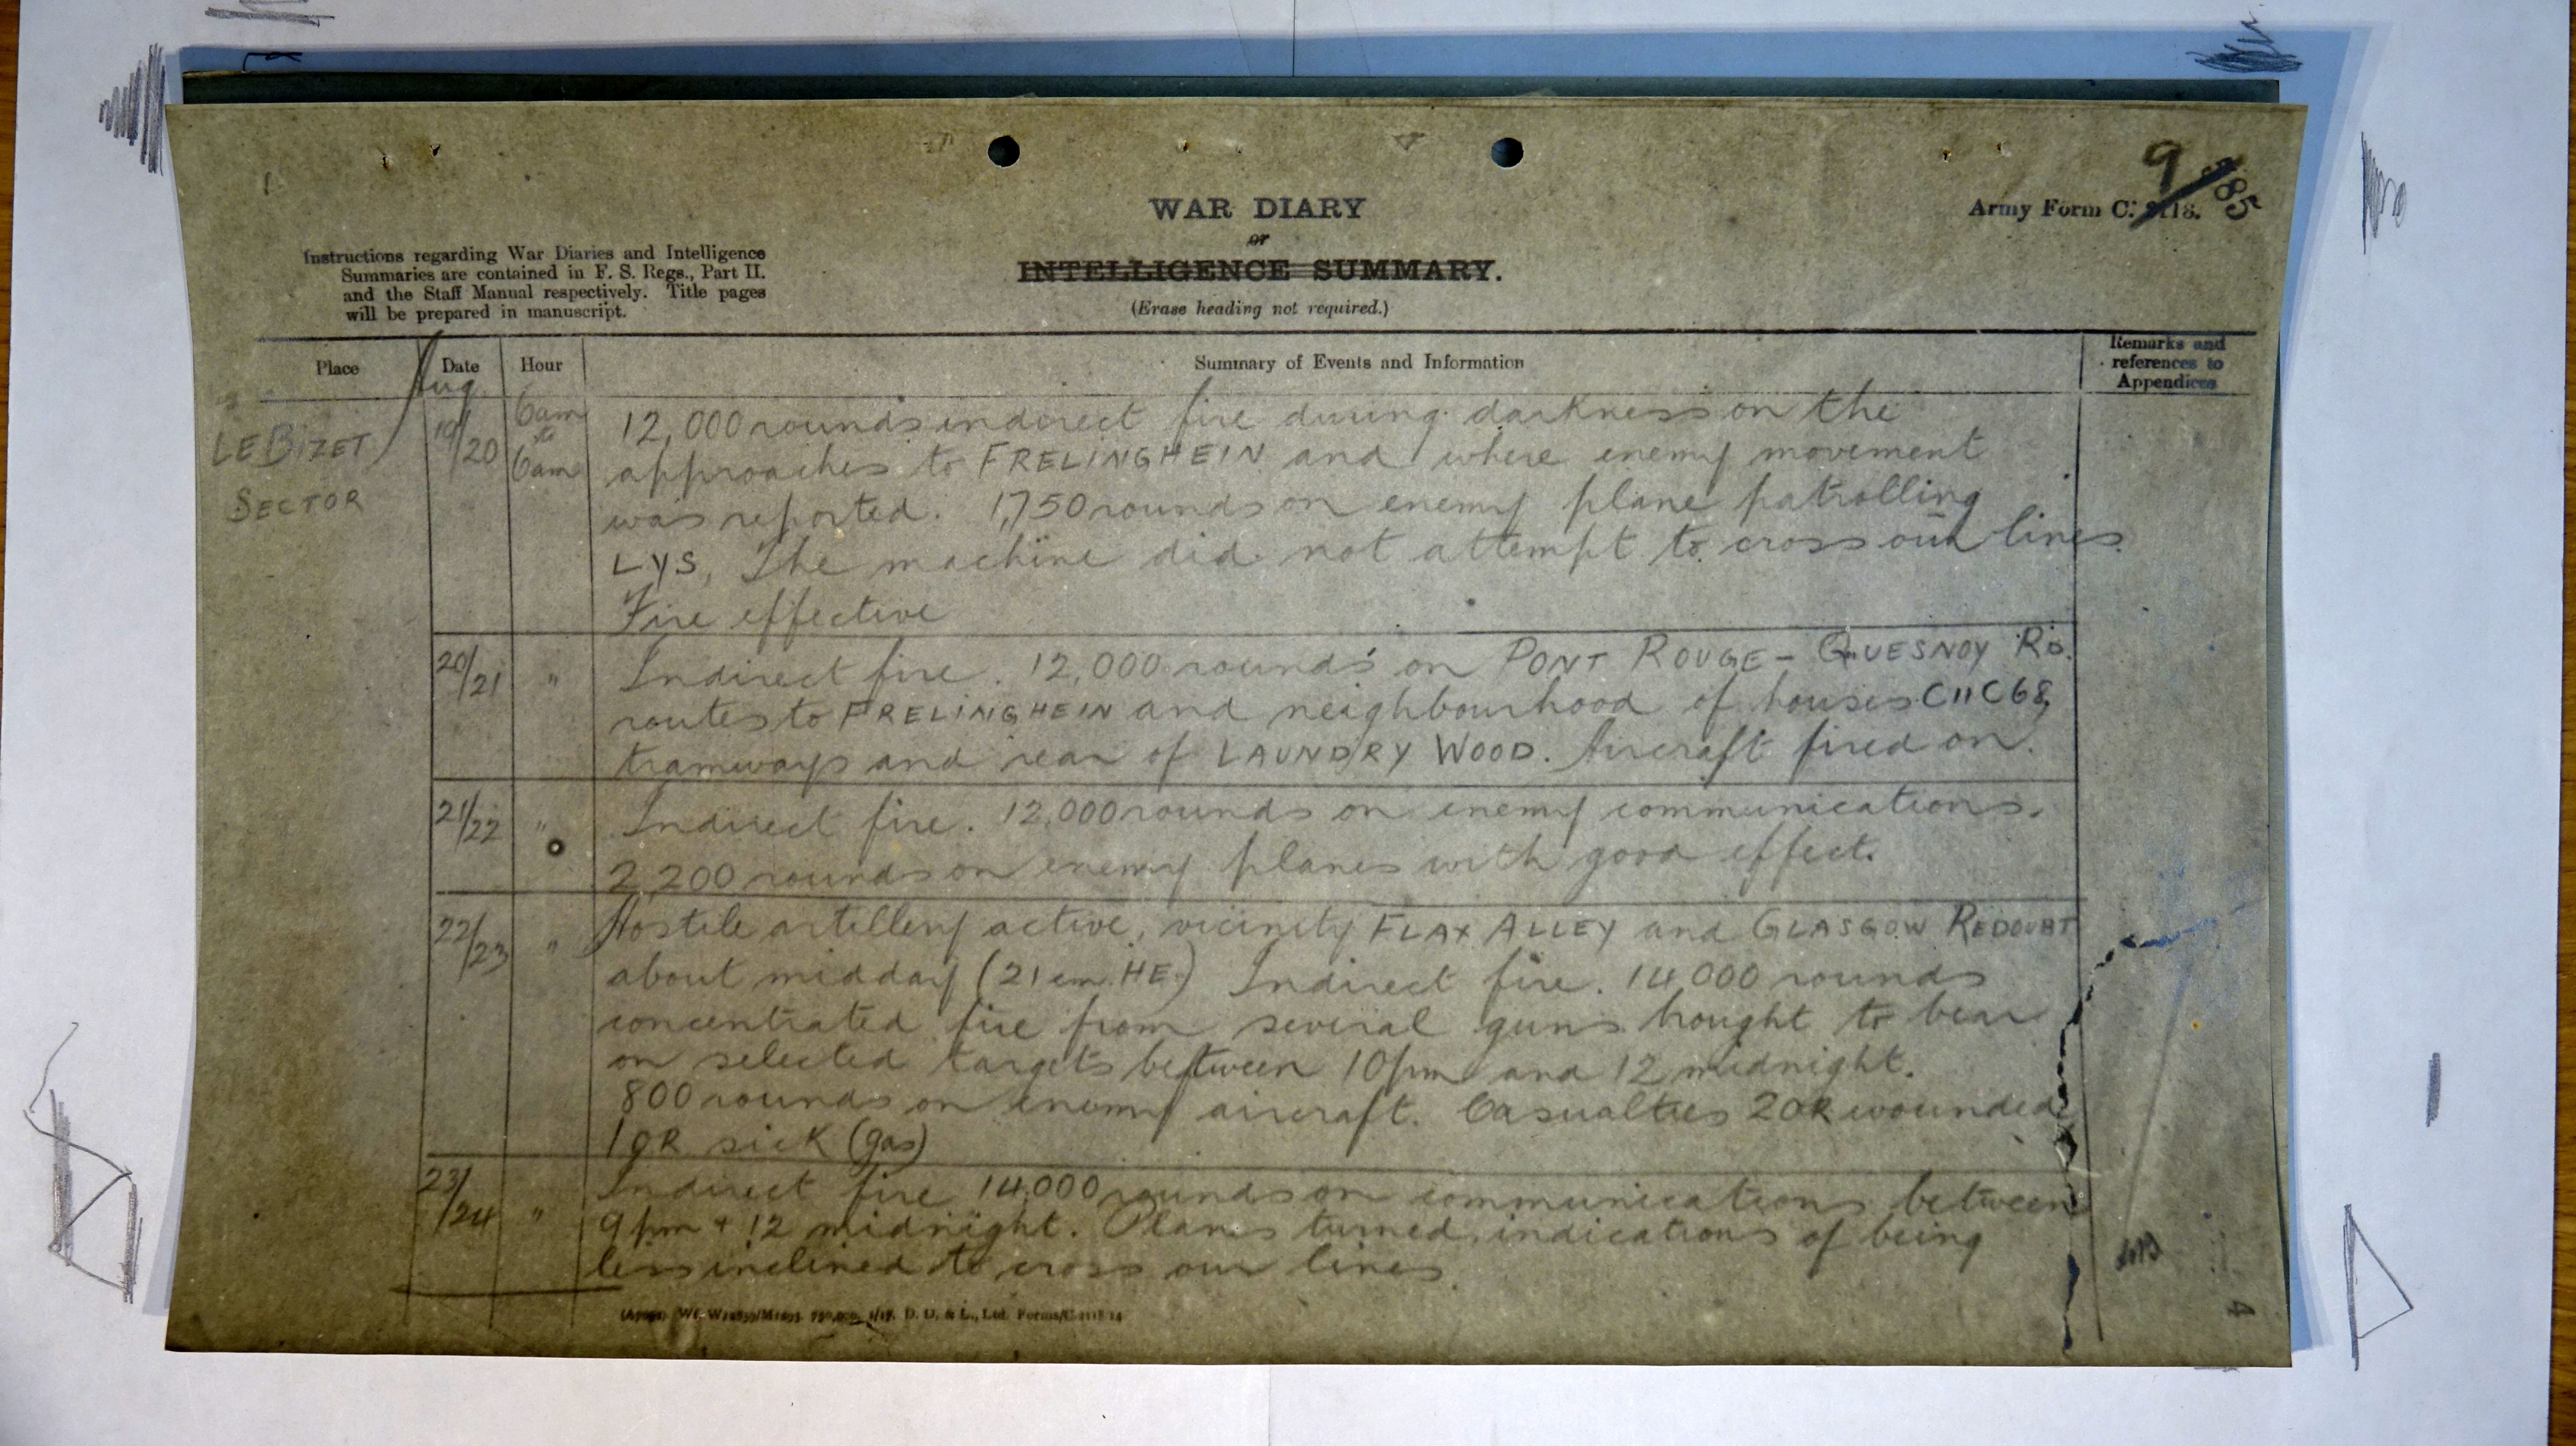 9
385
WAR DIARY
or
INTELLIGENCE SUMMARY.
(Erase heading not required.)
Army Form C. 2118.
Instructions regarding War Diaries and Intelligence
Summaries are contained in F. S. Regs., Part II.
and the Staff Manual respectively. Title pages
will be prepared in manuscript.
Place
Date
Hour
Summary of Events and Information
Remarks and
references to
Appendices
Aug.
LE BIZET
SECTOR
19/20
6am
to
6am
12,000 rounds indirect fire during darkness on the
approaches to FRELINGHEIN and where enemy movement
was reported. 1,750 rounds on enemy plane patrolling
LYS, The machine did not attempt to cross our lines.
Fire effective
20/21 "
Indirect fire. 12,000 rounds on PONT ROUGE - QUESNOY RD.
routes to FRELINGHEIN and neighbourhood of houses C11C68,
tramways and rear of LAUNDRY WOOD. Aircraft fired on.
21/22 "
Indirect fire. 12,000 rounds on enemy communications.
2,200 rounds on enemy planes with good effect.
22/23 "
Hostile artillery active, vicinity FLAX ALLEY and GLASGOW REDOUBT
about midday (21 cm. HE.) Indirect fire. 14,000 rounds
concentrated fire from several guns brought to bear
on selected targets between 10pm and 12 midnight.
800 rounds on enemy aircraft. Casualties 2OR wounded
1 OR sick (gas)
23/24 "
Indirect fire 14,000 rounds on communications between
9pm + 12 midnight. Planes turned, indications of being
less inclined to cross our lines.
D. D. & L., Ltd.
4